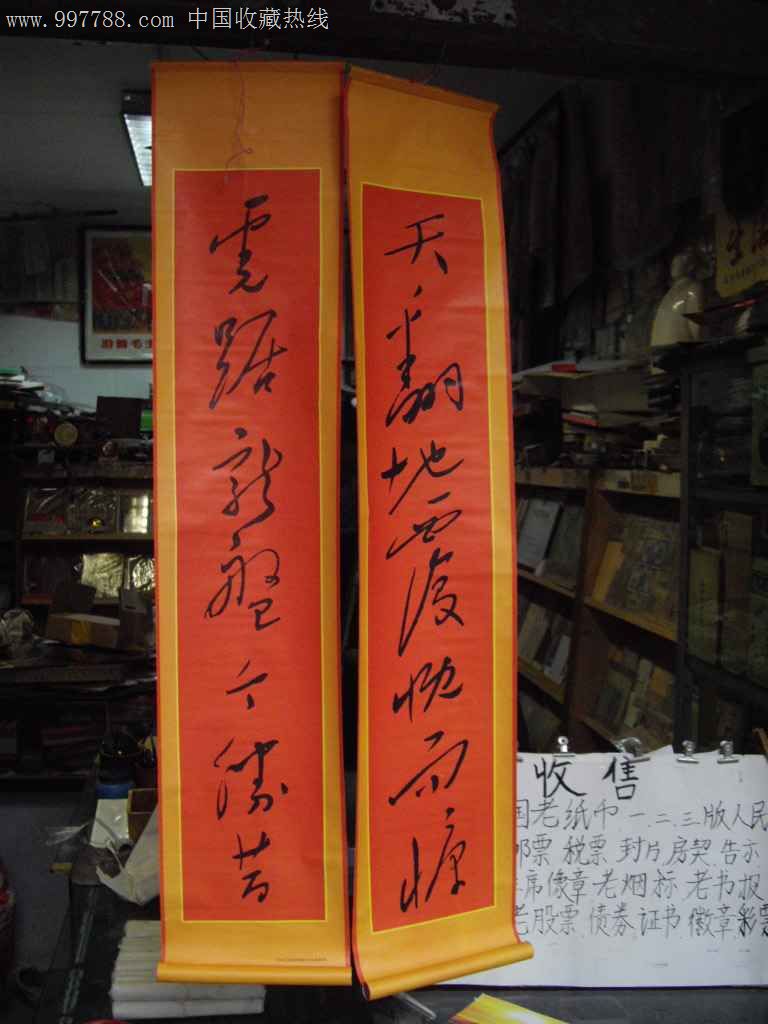 www.997788.com 中国收藏热线
虎踞龙盘今胜昔
天翻地覆慨而慷
收售
国老纸币.一.二.三.版人民
邮票.税票.封片.房契.告示
席像章.老烟标.老书报
老股票.债券.证书.徽章.彩票